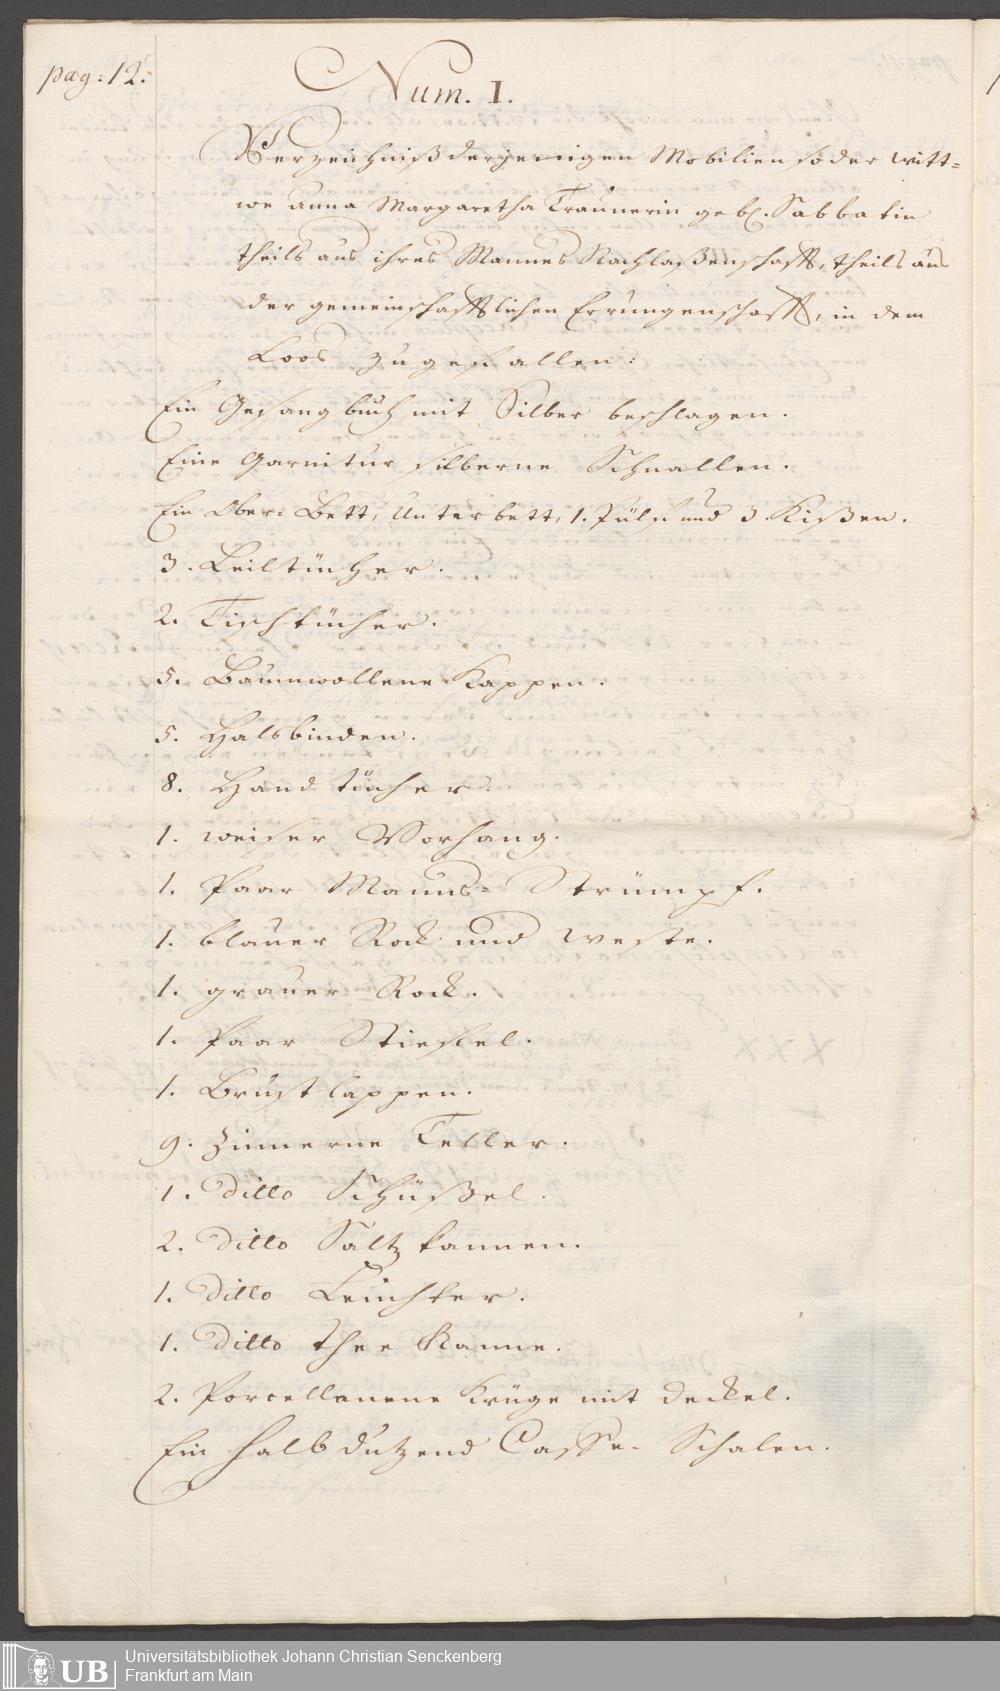 pag: 12.
Num. I.
Verzeichniß derjenigen Mobilien so der Witt=
we Anna Margaretha Traunerin geb. Sabbatin
theils aus ihres Mannes Nachlaßenschafft, theils aus
der gemeinschafftlichen Errungenschafft, in dem
Loos zugefallen:
Ein Gesangbuch mit Silber beschlagen.
Eine Garnitur silberne Schnallen.
Ein Ober= Bett, Unterbett, 1. Pülf und 3 Kißen.
3. Leiltücher.
2. Tischtücher.
5. Baumwollene Kappen.
5. Halsbinden.
8. Handtücher.
1. weiser Vorhang.
1. Paar Manns= Strümpf.
1. blauer Rock und Weste.
1. grauer Rock.
1. Paar Stiefel.
1. Brustlappen.
9. Zinnerne Teller.
1. Ditto Schüßel.
2. Ditto Saltzkannen.
1. Ditto Leuchter.
1. Ditto Thee Kanne.
2. Porcellanene Krüge mit Deckel.
Ein halb dutzend Caffe= Schalen.
UB Universitätsbibliothek Johann Christian Senckenberg
Frankfurt am Main